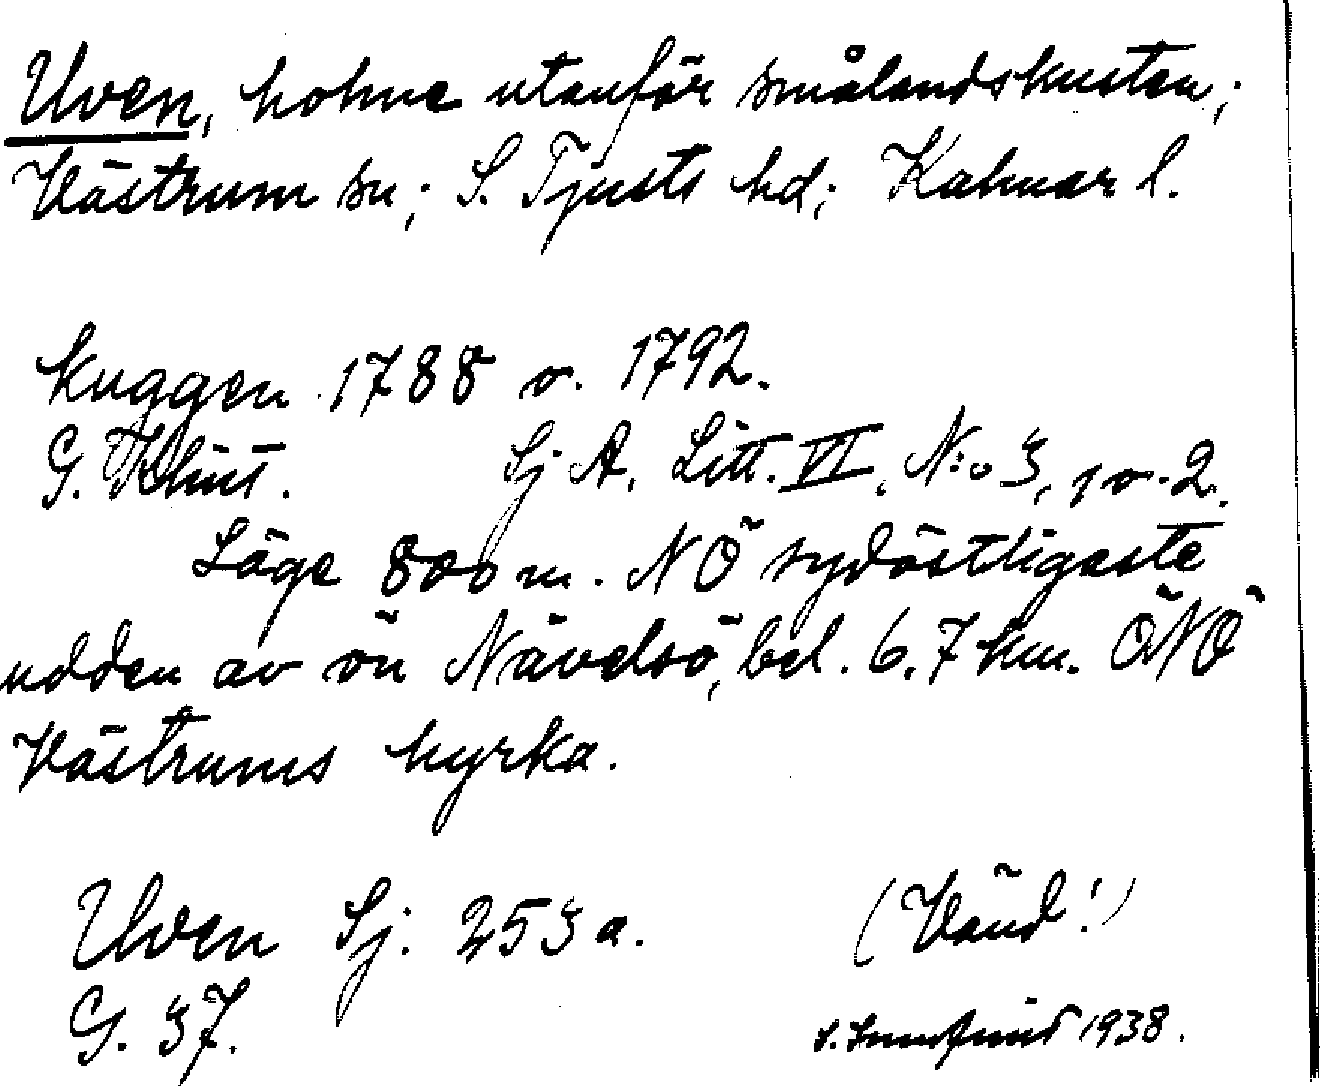 Uven, holme utanför smålandskusten;
Västrum sn; S. Tjusts hd; Kalmar l.
Kuggen 1788 o. 1792.
G. Klint. Sj A. Litt. VI, N:o 3, 1 o. 2.
Läge 800 m. NÖ sydöstligaste
udden av ön Nävelsö, bel. 6.7 km. ÖNÖ
Västrums kyrka.
Uven Sj. 253 a. (Vänd!)
G. 37. 1938.